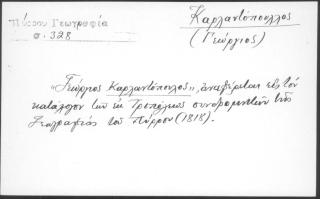 Πύρρου Γεωγραφία
σ. 328
Καρλαντόπουλλος
(Γεώργιος)
"Γεώργιος Καρλαντόπουλος", ἀναφέρεται εἰς τόν
κατάλογον τῶν ἐκ Τροπόλεως συνδρομητῶν τῆς
Γεωγραφίας τοῦ Πύρρου (1818).